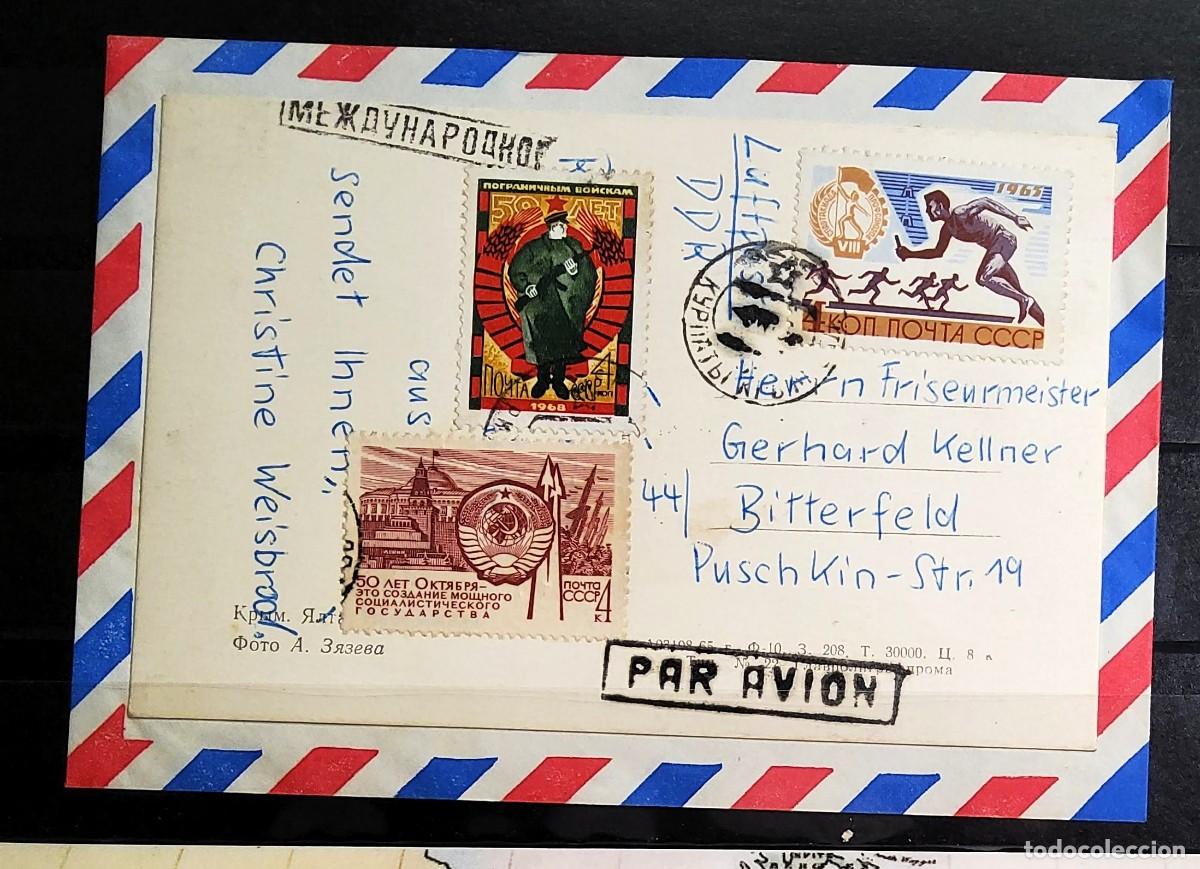 МЕЖДУНАРОДНОЕ
Luftpost
DDR
1965
VIII
4 КОП ПОЧТА СССР
ПОГРАНИЧНЫМ ВОЙСКАМ
50 ЛЕТ
ПОЧТА СССР 4
КОП
1968
aus
sendet Ihnen
Christine Weisbrod.
КУРПАТЫ
Herrn Friseurmeister
Gerhard Kellner
44/ Bitterfeld
Puschkin-Str. 19
50 ЛЕТ ОКТЯБРЯ–
ЭТО СОЗДАНИЕ МОЩНОГО
СОЦИАЛИСТИЧЕСКОГО
ГОСУДАРСТВА
ПОЧТА
СССР 4
К
Крым. Ялта
Фото А. Зязева
А03108-65 г. Ф-10. З. 208. Т. 30000. Ц. 8 к
PAR AVION
todocoleccion